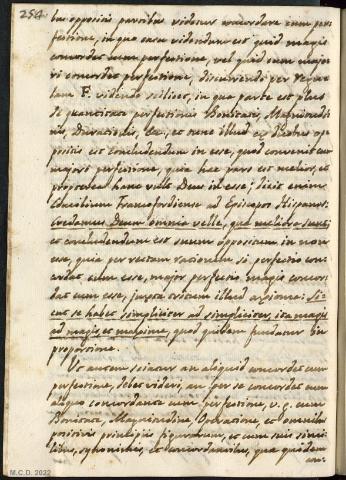 254
bus oppositis partibus videtur concordare cum per-
fectione, in quo casu videndum est quid magis
concordet cum perfectione, vel quid cum majo-
ri concordet perfectione, discurrendo per
lam F. videndo scilicet, in qua parte est plus
de quantitate perfectionis Bonitatis, Magnitudi-
nis, Durationis, &c., et tunc illud ex duobus op-
positis est concludendum in esse, quod convenit cum
majori perfectione, quia hæc pars est melior, et
propterea hanc vult Deus in esse; dicit enim
Concilium Francofordiense ad Episcopos Hispanos:
Credamus Deum omnia velle, quæ meliora sunt;
et concludendum est suum oppositum in non
esse, quia per rectam rationem si perfectio con-
cordat cum esse, major perfectio magis concor-
dat cum esse, juxta tritum illud axioma: Si-
cut se habet simpliciter ad simpliciter, ita magis
ad magis, et maxime, quod quidem fundatur in
proportione.
Ut autem sciatur an aliquid concordet cum
perfectione, debet videri, an per se concordet cum
aliquo concordante cum perfectione, v. g. cum
Bonitate, Magnitudine, Duratione, et omnibus
positivis principiis figurarum, et cum suis simi-
libus, synonimis, et concordantibus, quæ quidem
M.C.D. 2022